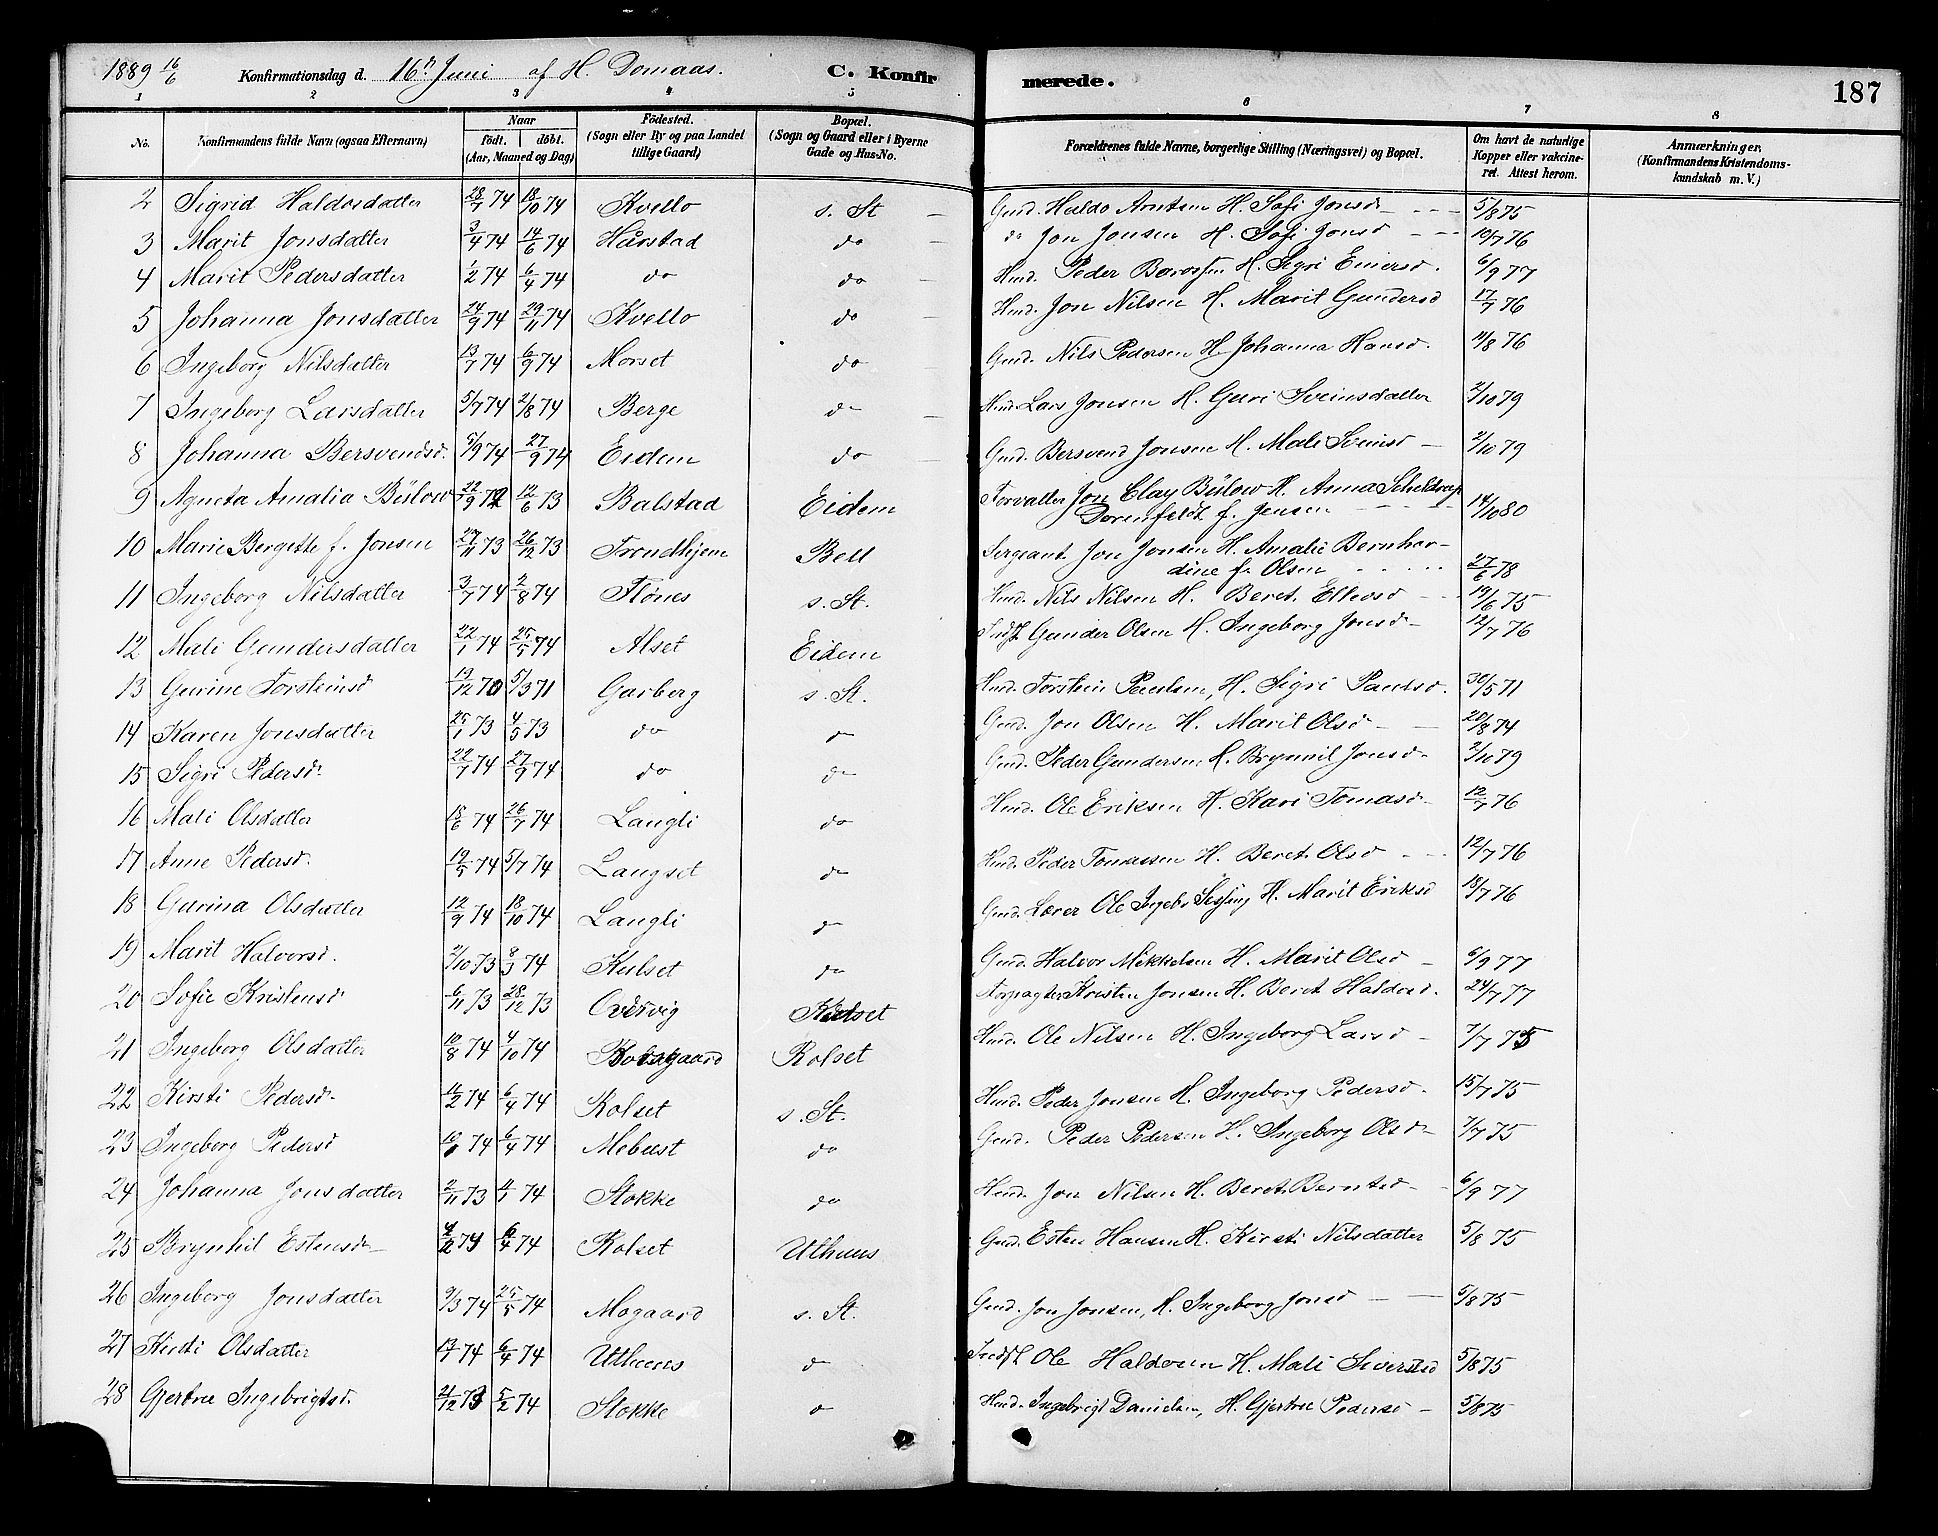 1889 16/6 Konfirmationsdag d. 16n Juni af H. Domaas. C. Konfirmerede. 187
1 2 3 4 5 6 7 8
No. Konfirmandens fulde Navn (ogsaa Efternavn) Naar födt. döbt. (Aar, Maaned og Dag) Födested. (Sogn eller By og paa Landet tillige Gaard) Bopæl. (Sogn og Gaard eller i Byerne Gade og Hus-No. Forældrenes fulde Navne, borgerlige Stilling (Næringsvei) og Bopæl. Om havt de naturlige Kopper eller vakcineret. Attest herom. Anmærkninger. (Konfirmandens Kristendomskundskab m. V.)
2 Sigrid Haldosdatter 28/7 74 18/10 74 Kvello s. St Gmd. Haldo Arntsen H. Sofi Jonsd 5/8 75
3 Marit Jonsdatter 3/4 74 14/6 74 Hårstad do do Jon Jonsen H. Sofi Jonsd 10/7 76
4 Marit Pedersdatter 1/2 74 6/4 74 do do Hmd. Peder H. Sigri 6/9 77
5 Johanna Jonsdatter 24/9 74 29/11 74 Kvello do Hmd. Jon Nilsen H. Marit Gundersd 17/7 76
6 Ingeborg Nilsdatter 13/7 74 6/9 74 Morset do Gmd. Nils Pedersen H. Johanna Hansd. 11/8 76
7 Ingeborg Larsdatter 5/7 74 2/8 74 Berge do Hmd. Lars Jonsen H. Guri Sveinsdatter 2/10 79
8 Johanna Bersvendsd. 5/9 74 27/9 74 Eidem do Gmd. Bersvend Jonsen H. Mali Sveinsd 2/10 79
9 Agneta Amalia Bülow 22/9 72 12/6 73 Balstad Eidem Forvalter Jon Clay Bülow H. Anna Scheldrup Dorenfeldt f. Jensen 14/10 80
10 Marie Bergette f. Jonsen 27/11 73 26/12 73 Trondhjem Bell Sergeant Jon Jonsen H. Amalie Bernhardine f. Olsen 27/6 78
11 Ingeborg Nilsdatter 3/7 74 2/8 74 Flönes s. St. Hmd. Nils Nilsen H. Beret Ellevsd 19/6 75
12 Mali Gundersdatter 22/1 74 25/5 74 Alset Eidem Indst Gunder Olsen H. Ingeborg Jonsd 12/7 76
13 Gurine Torsteinsd 19/12 70 5/3 71 Garberg s. St. Hmd. Torstein Paulsen, H. Sigri Paulsd. 30/5 71
14 Karen Jonsdatter 25/1 73 4/5 73 do do Gmd. Jon Olsen H. Marit Olsd 20/8 74
15 Sigri Pedersd 22/7 74 27/9 74 do do Gmd. Peder Gundersen H. Brynnil Jonsd 2/10 79
16 Mali Olsdatter 18/6 74 26/7 74 Langli do Hmd. Ole Eriksen H. Kari Tomasd 12/7 76
17 Anne Pedersd. 19/5 74 5/7 74 Langset do Hmd. Peder Tomassen H. Beret Olsd 12/7 76
18 Gurina Olsdatter 12/9 74 18/10 74 Langli do Gmd. Lærer Ole H. Marit Eriksd 18/7 76
19 Marit Halvorsd. 2/10 73 8/3 74 Kulset do Gmd. Halvor Mikkelsen H. Marit Olsd 6/9 77
20 Sofie Kristensd 6/11 73 28/12 73 Overvig Kulset Kristen Jonsen H. Beret Haldosd. 24/7 77
21 Ingeborg Olsdatter 10/8 74 4/10 74 Rolset Hmd. Ole Nilsen H. Ingeborg Larsd 7/7 75
22 Kirsti Pedersd 11/2 74 6/4 74 Rolset s. St. Hmd. Peder Jonsen H. Ingeborg Pedersd 15/7 75
23 Ingeborg Pedersd 74 6/4 74 Mebust do Gmd. Peder Pedersen H. Ingeborg Olsd 7/7 75
24 Johanna Jonsdatter 2/11 73 74 Stokke do Hmd. Jon Nilsen H. Beret Berntsd 6/9 77
25 Brynhil Estensd 74 6/4 74 Rolset Uthuus Gmd. Esten Hansen H. Kirsti Nilsdatter 5/8 75
26 Ingeborg Jonsdatter 9/3 74 25/5 74 Mogaard s. St. Gmd. Jon Jonsen, H. Ingeborg Jonsd 5/8 75
27 Kirsti Olsdatter 74 6/4 74 Uthuus do Indst Ole Haldosen H. Mali Siversd 5/8 75
28 Gjertrue Ingebrigtsd. 21/12 73 5/2 74 Stokke do Hmd. Ingebrigt Danielsen, H. Gjertrue Pedersd 5/8 75